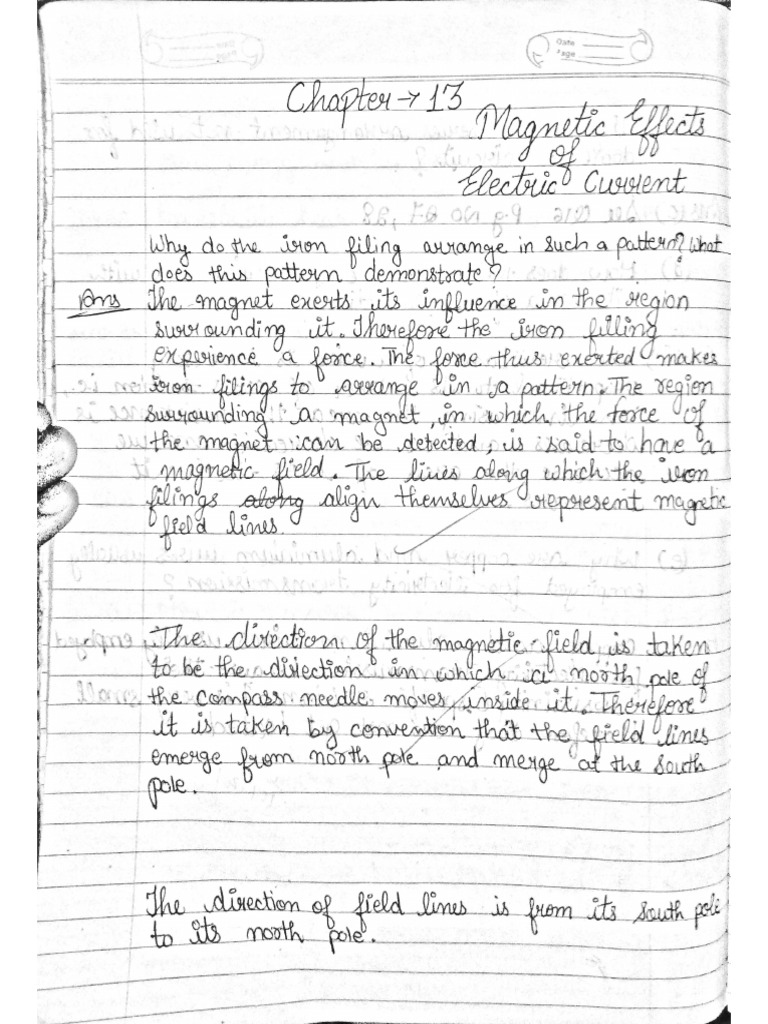 Date
Page
Chapter → 13
Magnetic Effects
of
Electric Current
Why do the iron filing arrange in such a pattern? What
does this pattern demonstrate?
Ans The magnet exerts its influence in the region
surrounding it. Therefore the iron filling
experience a force. The force thus exerted makes
iron filings to arrange in a pattern. The region
surrounding a magnet, in which the force of
the magnet can be detected, is said to have a
magnetic field. The lines along which the iron
filings along align themselves represent magnetic
field lines.
The direction of the magnetic field is taken
to be the direction in which a north pole of
the compass needle moves inside it. Therefore
it is taken by convention that the field lines
emerge from north pole and merge at the south
pole.
The direction of field lines is from its south pole
to its north pole.